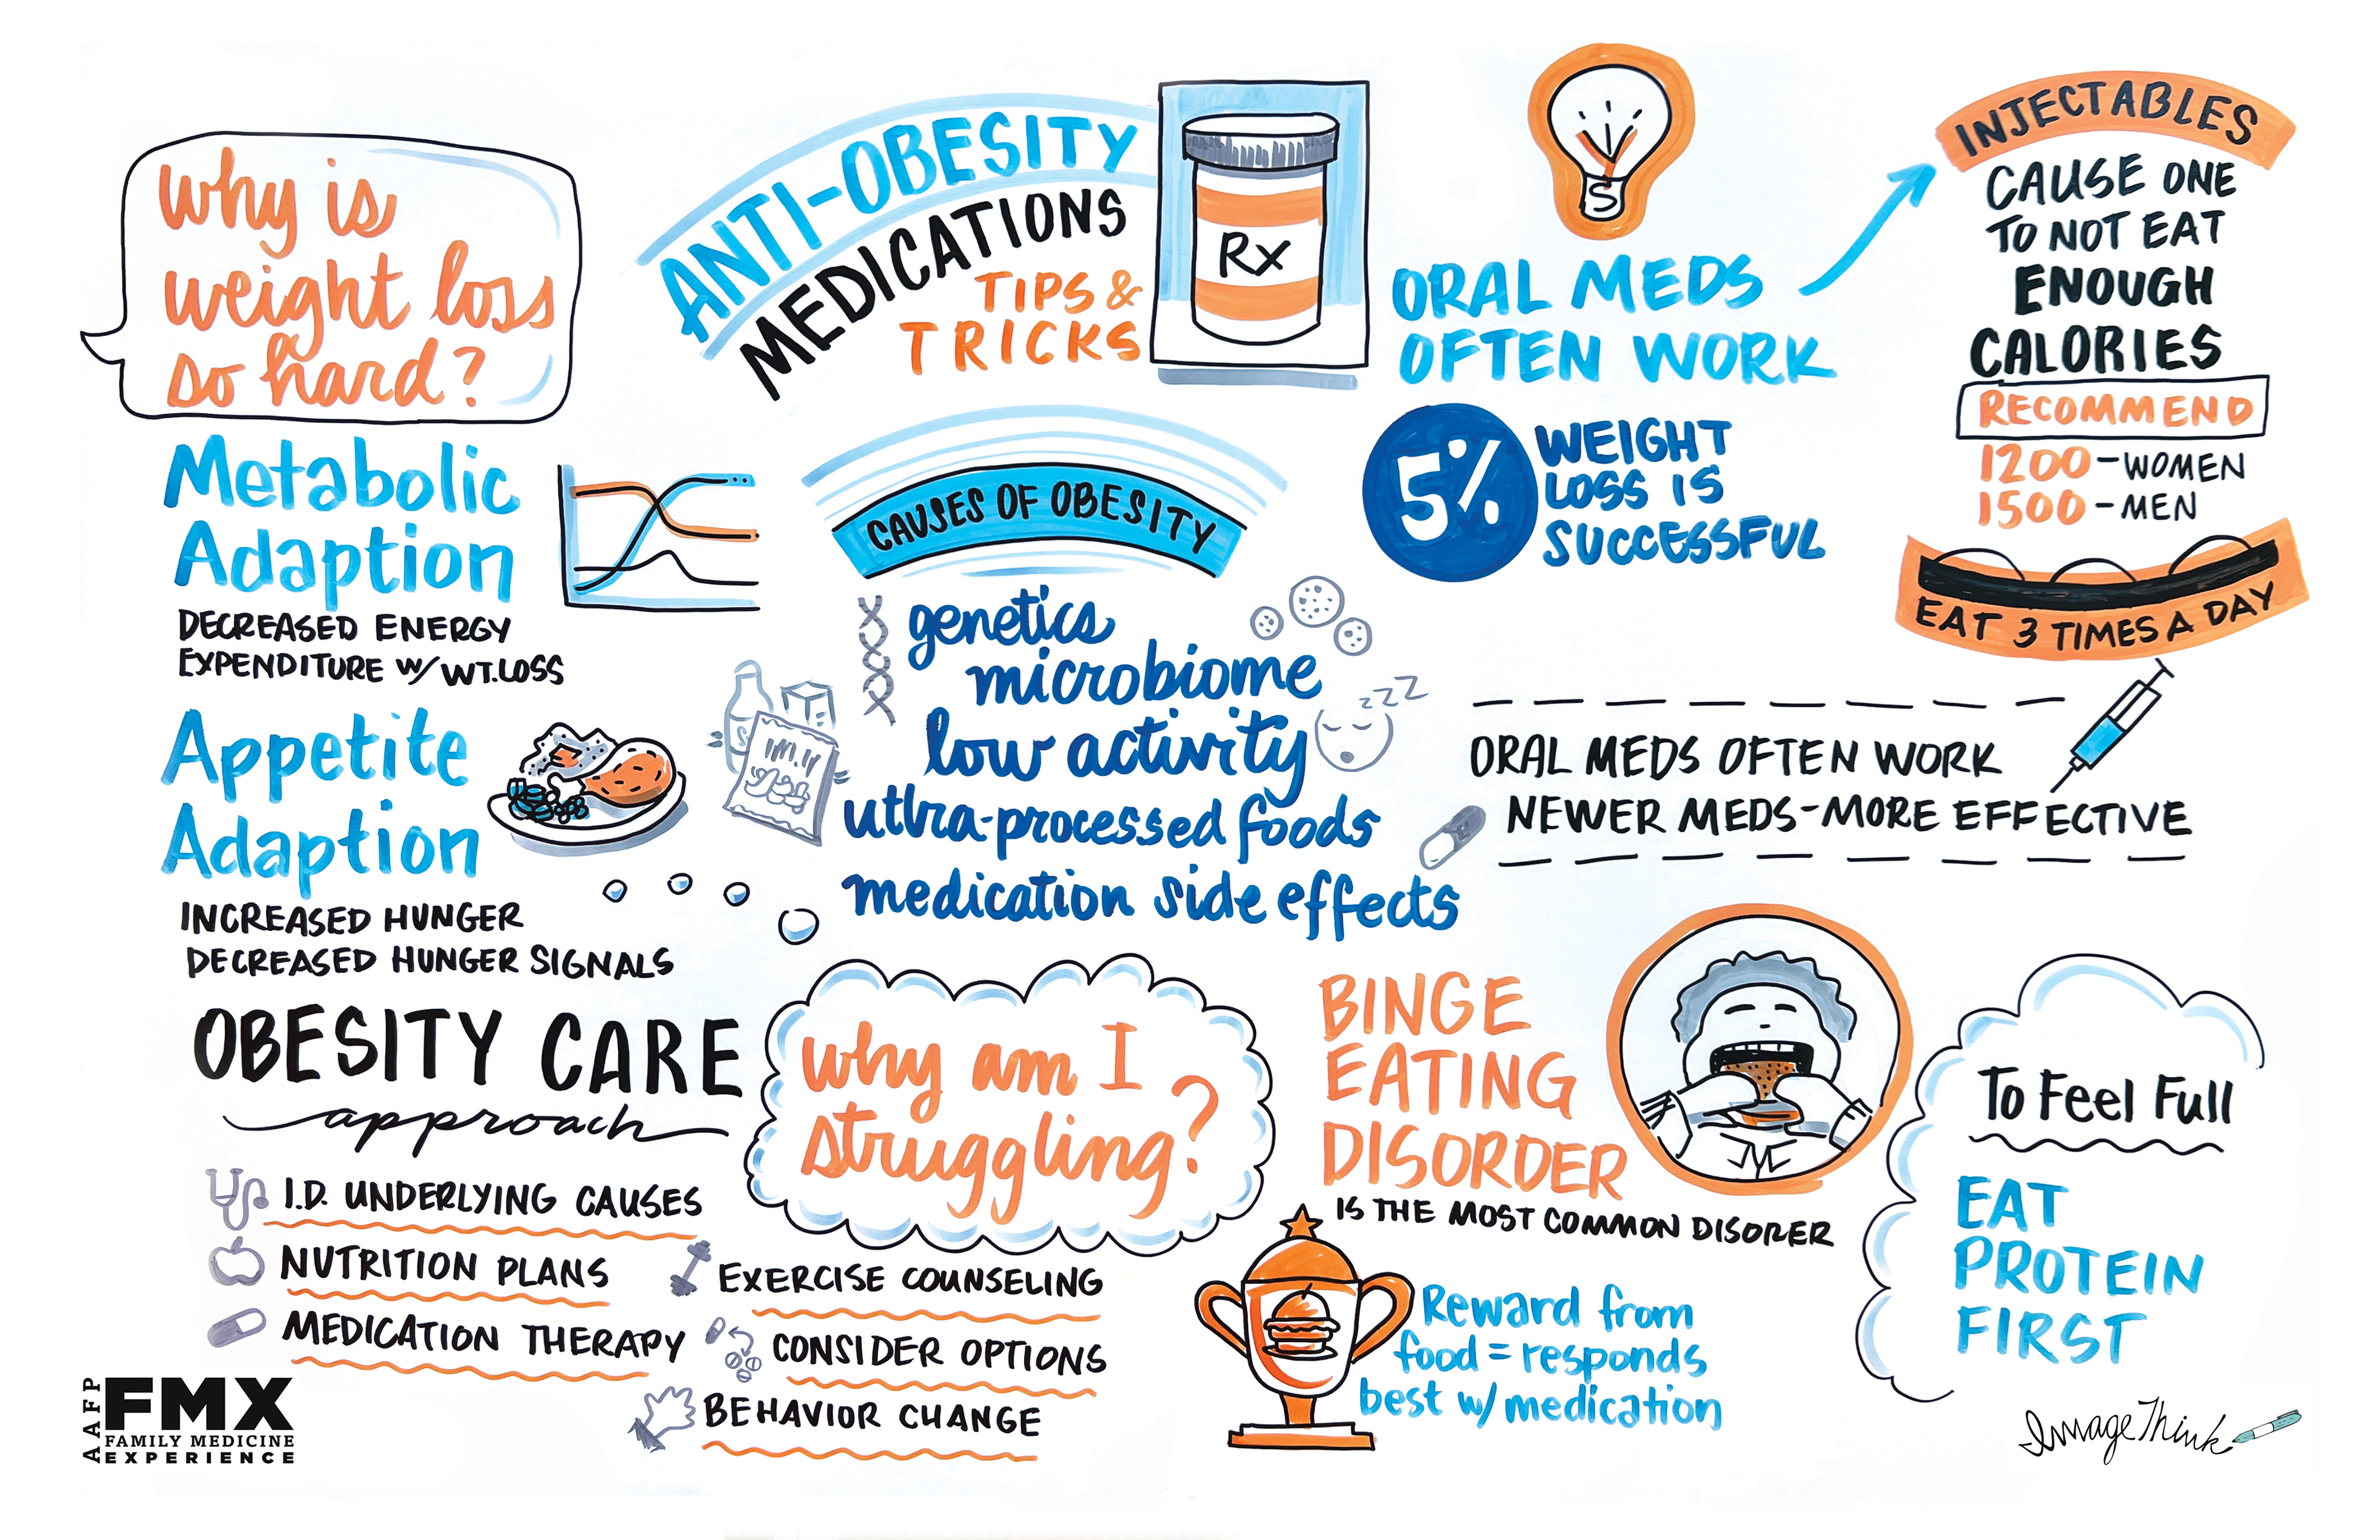 Why is
weight loss
so hard?
Metabolic
Adaption
DECREASED ENERGY
EXPENDITURE W/ WT.LOSS
Appetite
Adaption
INCREASED HUNGER
DECREASED HUNGER SIGNALS
ANTI-OBESITY
MEDICATIONS
TIPS &
TRICKS
Rx
CAUSES OF OBESITY
genetics
microbiome
low activity
utlra-processed foods
medication side effects
zzz
ORAL MEDS
OFTEN WORK
5%
WEIGHT
LOSS IS
SUCCESSFUL
INJECTABLES
CAUSE ONE
TO NOT EAT
ENOUGH
CALORIES
RECOMMEND
1200-WOMEN
1500-MEN
EAT 3 TIMES A DAY
ORAL MEDS OFTEN WORK
NEWER MEDS-MORE EFFECTIVE
OBESITY CARE
approach
I.D. UNDERLYING CAUSES
NUTRITION PLANS
MEDICATION THERAPY
EXERCISE COUNSELING
CONSIDER OPTIONS
BEHAVIOR CHANGE
why am I
struggling?
BINGE
EATING
DISORDER
IS THE MOST COMMON DISORER
Reward from
food = responds
best w/ medication
To Feel Full
EAT
PROTEIN
FIRST
AAFP
FMX
FAMILY MEDICINE
EXPERIENCE
ImageThink